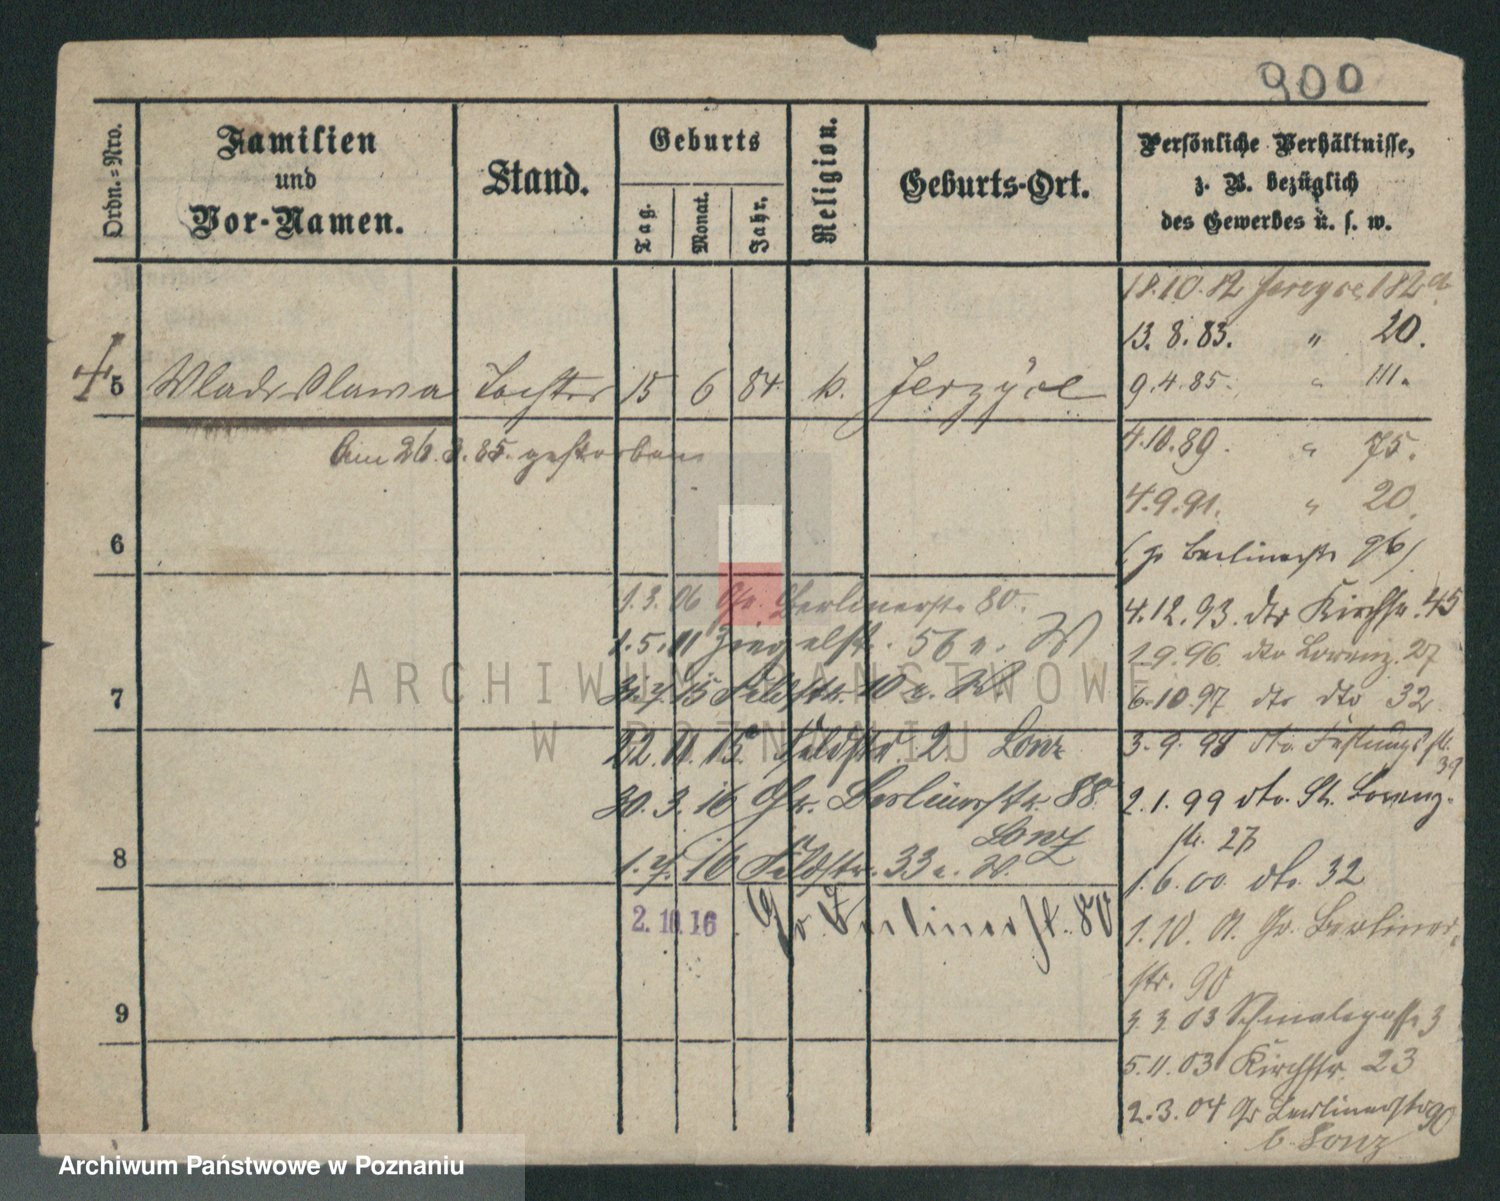 900
Ordn.=Nro.
Familien
und
Vor-Namen.
Stand.
Geburts
Tag.
Monat.
Jahr.
Religion.
Geburts-Ort.
Persönliche Verhältnisse,
z. B. bezüglich
des Gewerbes u. s. w.
18.10.82 Jerzyce 182a.
13.8.83. " 20.
5 Wladislawa Tochter 15 6 84 k. Jerzyce
9.4.85. " 111.
Am 26.8.85. gestorben
4.10.89. " 75.
4.9.91. " 20.
6
(Berlinerstr 96)
1.3.06 Gr. Berlinerstr. 80.
4.12.93. dto Kirchstr. 45
1.5.11 Ziegelstr. 56 W
1.9.96. dto Lorenz. 27
7
15 Feldstr. 10
6.10.97 dto dto 32
22.11.15. Feldstr. 2 Lonz
3.9.98 dto. Festungsstr. 39
30.3.16 Gr. Berlinerstr. 88.
Lonz
2.1.99 dto. St. Lorenz-
str. 27
8
16 Feldstr. 33
1.6.00 dto. 32
2.10.16 Gr. Berlinerst. 80
1.10.01. Gr. Berliner-
str. 90
9
3.3.03 Schmalegasse 3
5.11.03 Kirchstr. 23
2.3.04 Gr Berlinerstr 90
b. Lonz
ARCHIWUM PAŃSTWOWE
W POZNANIU
Archiwum Państwowe w Poznaniu